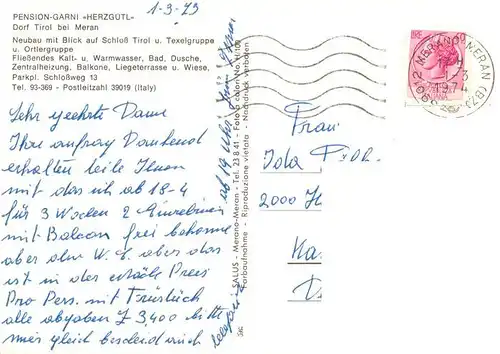 PENSION-GARNI «HERZGÜTL»
Dorf Tirol bei Meran
Neubau mit Blick auf Schloß Tirol u. Texelgruppe
u. Ortlergruppe
Fließendes Kalt- u. Warmwasser, Bad, Dusche,
Zentralheizung, Balkone, Liegeterrasse u. Wiese,
Parkpl. Schloßweg 13
Tel. 93-369 - Postleitzahl 39019 (Italy)
1-3-73
Sehr geehrte Dame
Ihre anfrag Dankend
erhalten teile Ihnen
mit das ich ab 18-4
für 3 Wochen 2
mit Balcon frei bekomme
aber ohne W. C. aber das
ist in der etatle Preis
Pro Pers. mit Früstück
alle abgaben £ 3,400 bitte
mir gleich bescheid auch
telefonisch ab 19 Uhr
SALUS - Merano-Meran - Tel. 23 8 41 - Foto
Farbaufnahme - Riproduzione vietata - Nachdruck verboten
39012 MERANO-MERAN (BZ)
1974
Frau
Ida
2000 H